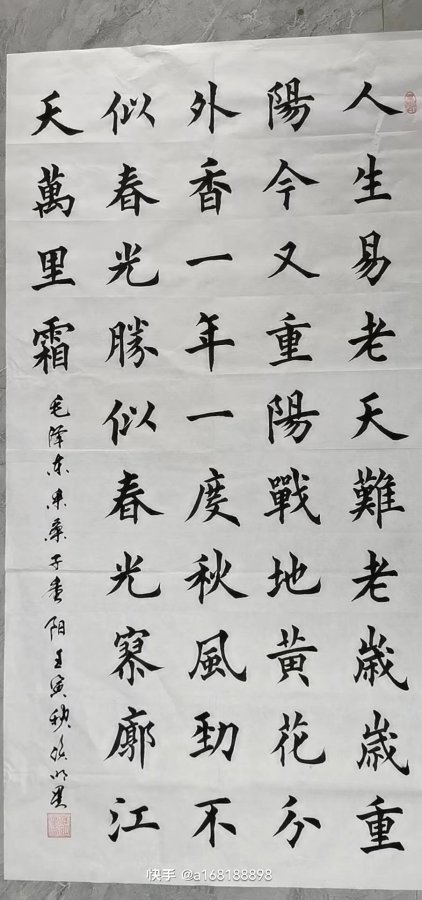 人生易老天難老歲歲重
陽今又重陽戰地黃花分
外香一年一度秋風勁不
似春光勝似春光寥廓江
天萬里霜
毛泽东采桑子重阳壬寅秋
快手 @a168188898